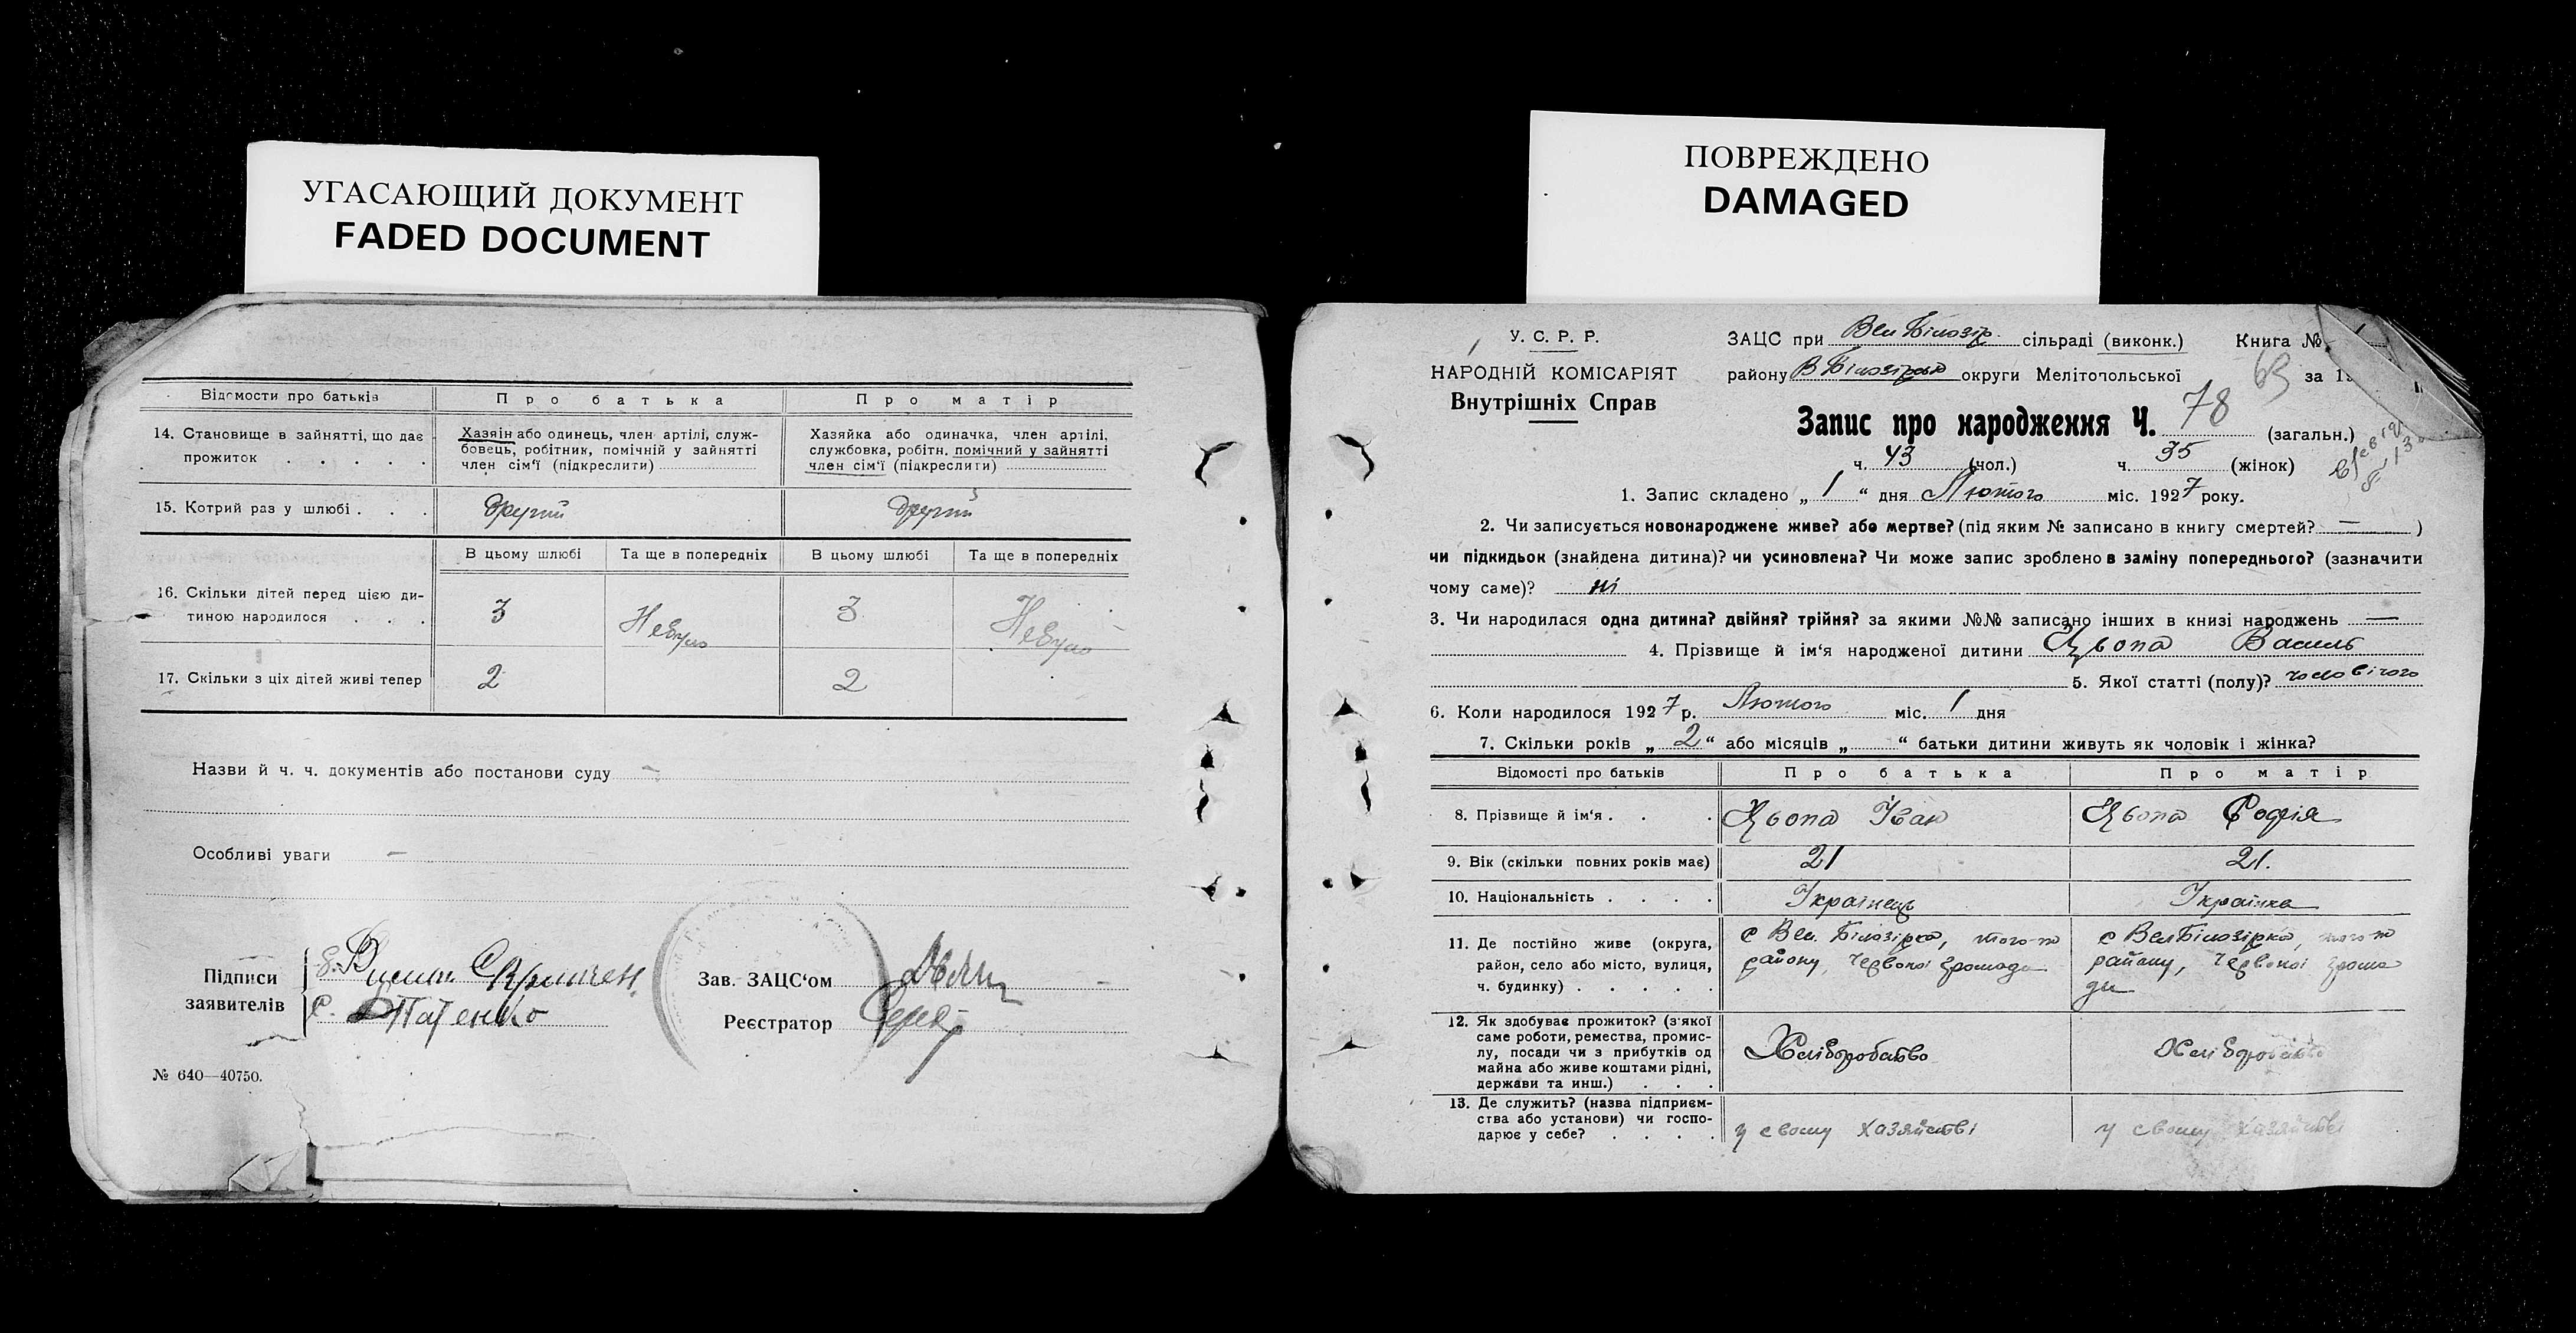 УГАСАЮЩИЙ ДОКУМЕНТ
FADED DOCUMENT
Відомости про батьків
Про батька
Про матір
14. Становище в зайнятті, що дає прожиток . . . . .
Хазяін або одинець, член артілі, служ-
бовець, робітник, помічній у зайнятті
член сім'ї (підкреслити)
Хазяйка або одиначка, член артілі,
службовка, робітн. помічний у зайнятті
член сім'ї (підкреслити)
15. Котрий раз у шлюбі . . .
другий
другий
В цьому шлюбі
Та ще в попередніх
В цьому шлюбі
Та ще в попередніх
16. Скільки дітей перед цією ди-
тиною народилося . . .
3
Небуло
3
Небуло
17. Скільки з ціх дітей живі тепер
2
2
Назви й ч. ч. документів або постанови суду —
Особливі уваги —
Підписи
заявителів
Зав. ЗАЦС'ом
Реєстратор
№ 640—40750.
ПОВРЕЖДЕНО
DAMAGED
У. С. Р. Р.
НАРОДНІЙ КОМІСАРІЯТ
Внутрішніх Справ
ЗАЦС при Вел Білозір. сільраді (виконк.) Книга №
району В Білозірсько округи Мелітопольської за 19
Запис про народження Ч. 78 (загальн.)
ч. 43 (чол.) ч. 35 (жінок)
1. Запис складено „ 1 “ дня Лютого міс. 1927 року.
2. Чи записується новонароджене живе? або мертве? (під яким № записано в книгу смертей? — )
чи підкидьок (знайдена дитина)? чи усиновлена? Чи може запис зроблено в заміну попереднього? (зазначити
чому саме)? ні
3. Чи народилася одна дитина? двійня? трійня? за якими №№ записано інших в книзі народжень —
4. Прізвище й ім'я народженої дитини Цьопа Василь
5. Якої статті (полу)? чоловічого
6. Коли народилося 1927 р. Лютого міс. 1 дня
7. Скільки років „ 2 “ або місяців „ “ батьки дитини живуть як чоловік і жінка?
Відомості про батьків
Про батька
Про матір
8. Прізвище й ім'я . . .
Цьопа Іван
Цьопа Софія
9. Вік (скільки повних років має)
21
21.
10. Національність . . . .
Українець
Українка
11. Де постійно живе (округа,
район, село або місто, вулиця,
ч. будинку) . . . . .
с Вел. Білозірка, того-ж
району, Червоної громади
с Вел Білозірка, того-ж
району, Червоної грома
ди
12. Як здобуває прожиток? (з якої
саме роботи, ремества, промис-
лу, посади чи з прибутків од
майна або живе коштами рідні,
держави та инш.) . . .
Хліборобство
Хліборобство
13. Де служить? (назва підприєм-
ства або установи) чи госпо-
дарює у себе? . . . .
у своему хазяйстві
у своему хазяйстві